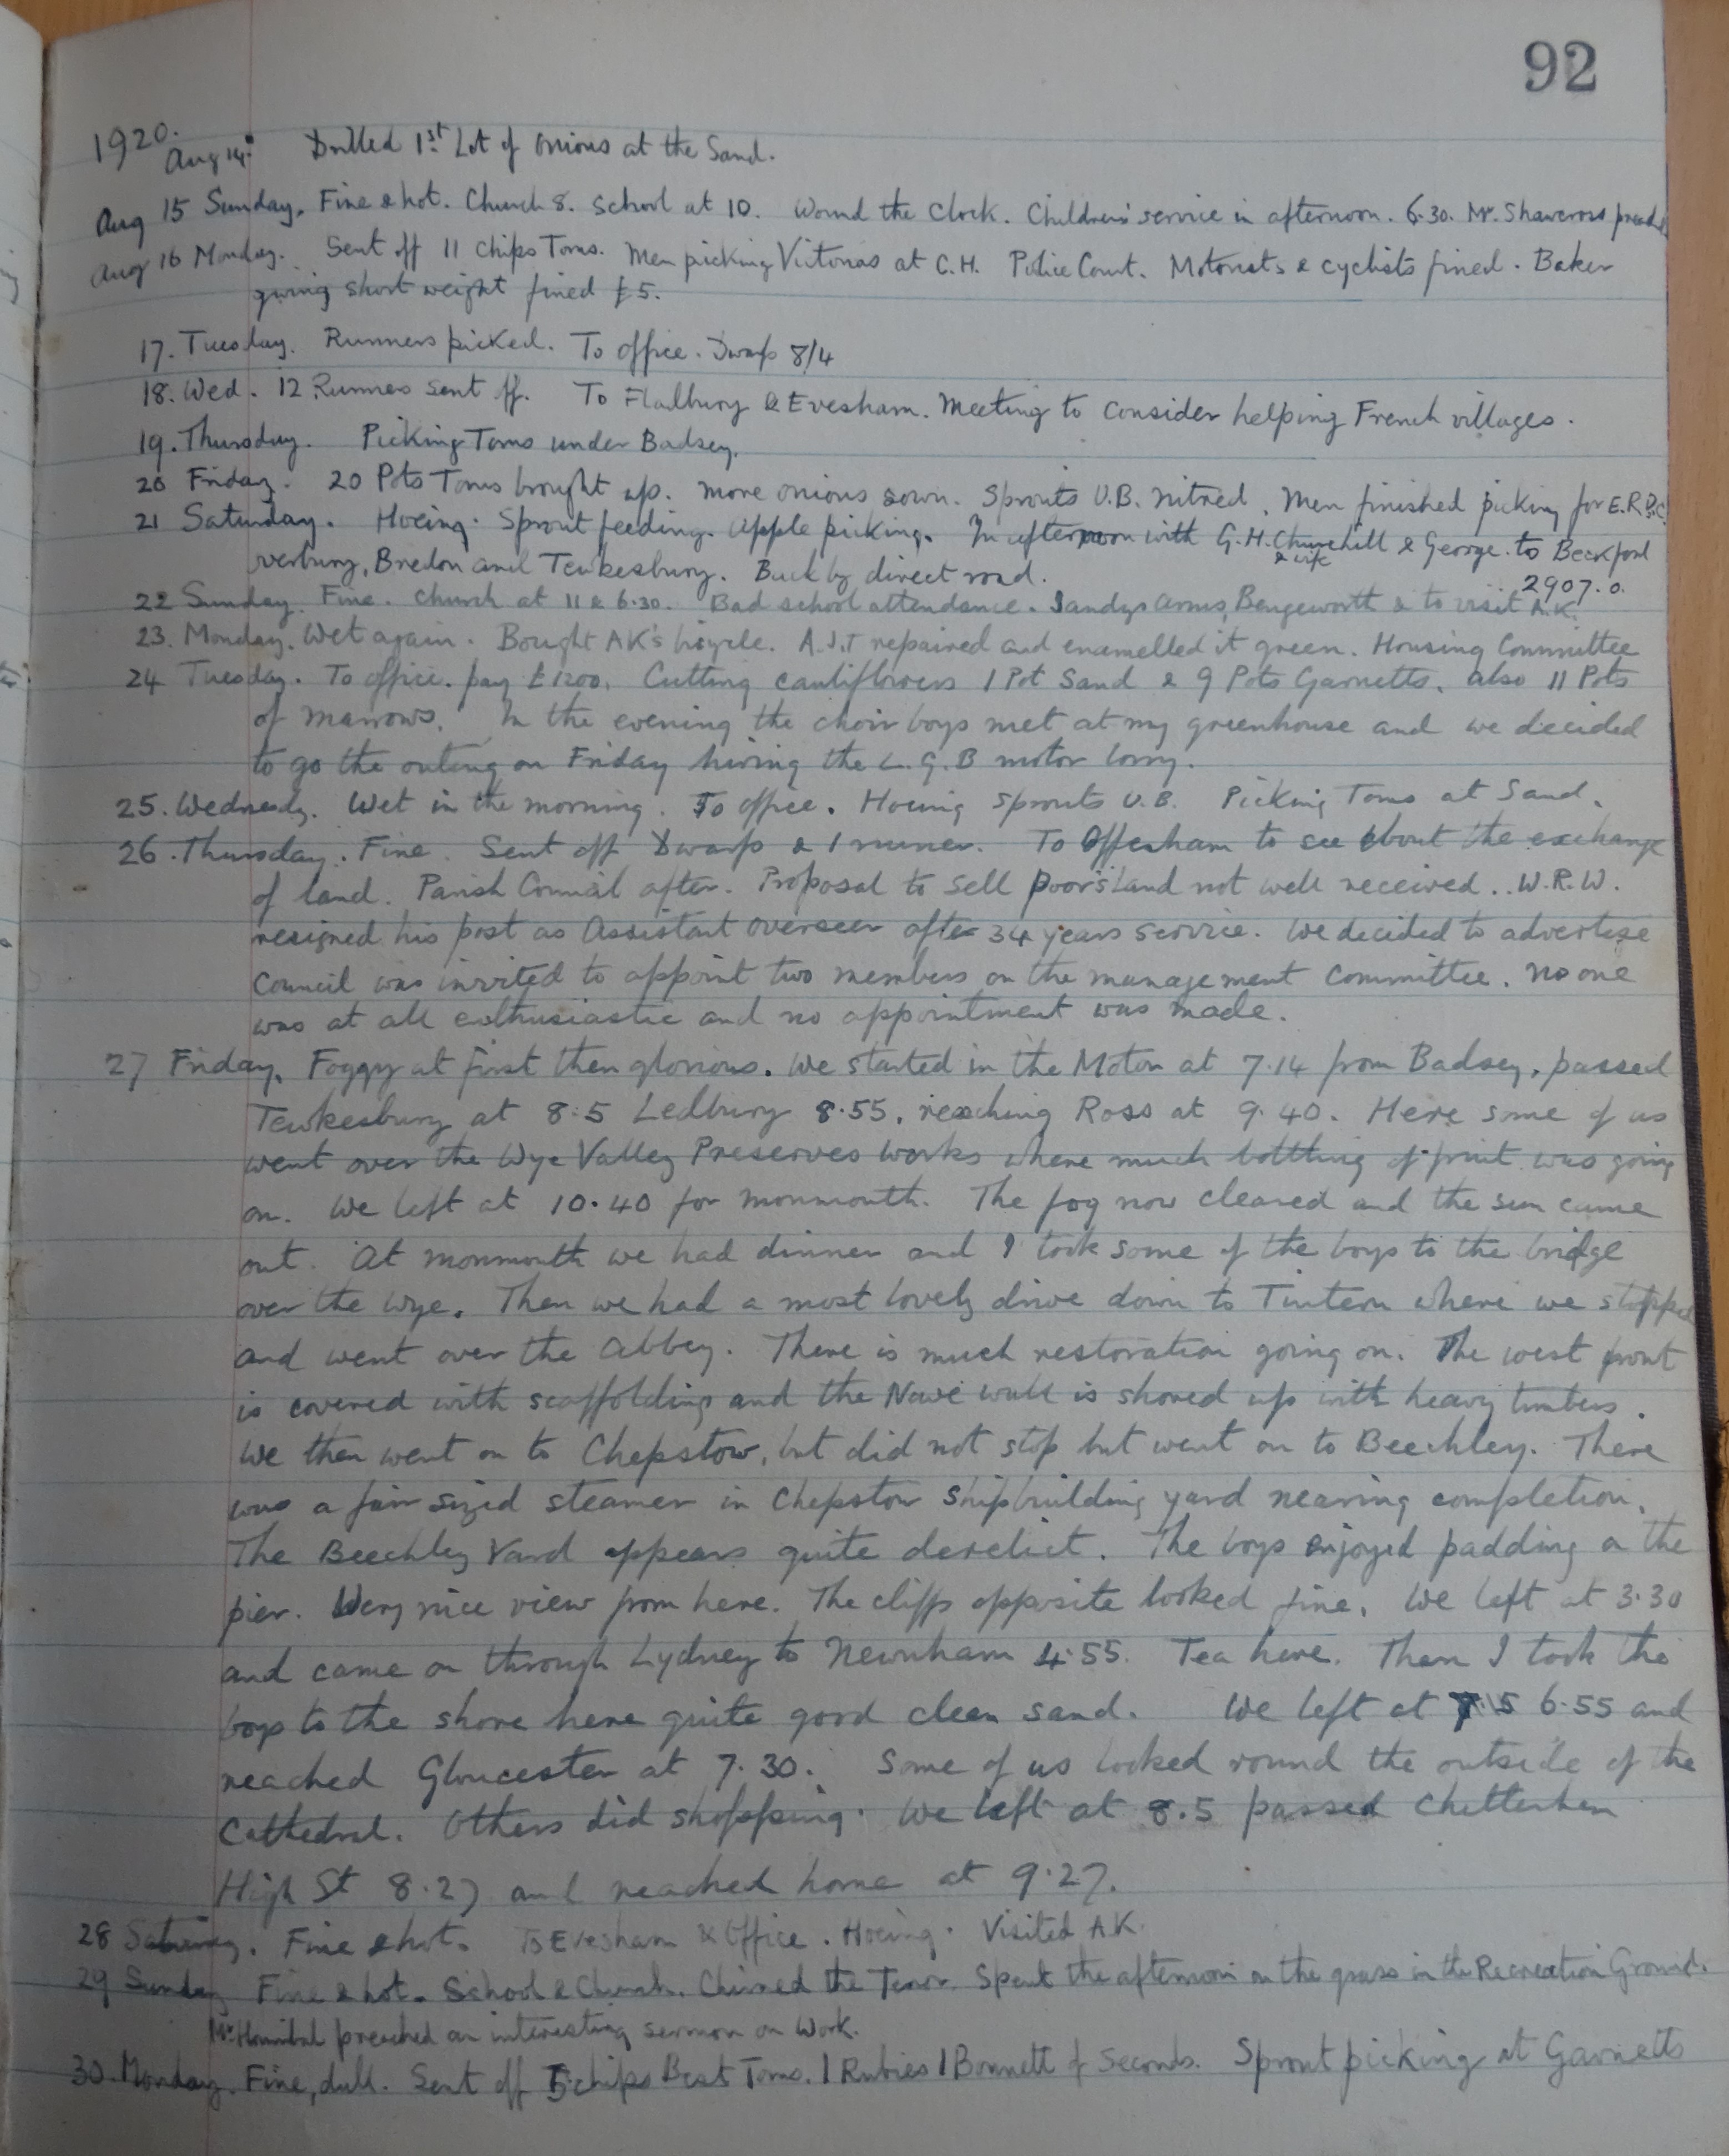 92
1920.
Aug 14. Drilled 1st Lot of Onions at the Sand.
Aug 15 Sunday. Fine & hot. Church 8. School at 10. Wound the Clock. Children's service in afternoon. 6.30. Mr. Shawcross preached
Aug 16 Monday. Sent off 11 chips Toms. Men picking Victorias at C.H. Police Court. Motorists & cyclists fined. Baker
giving short weight fined £5.
17. Tuesday. Runners picked. To office. Dwarfs 8/4
18. Wed. 12 Runners sent off. To Fladbury & Evesham. Meeting to consider helping French villages.
19. Thursday. Picking Toms under Badsey.
20 Friday. 20 Pots Toms brought up. More onions sown. Sprouts U.B. nitred. Men finished picking for E.R.D.C.
21 Saturday. Hoeing. Sprout feeding. Apple picking. In afternoon with G.H. Churchill & George to Beckford
& wife
Overbury, Bredon and Tewkesbury. Back by direct road.
2907.0.
22 Sunday. Fine. Church at 11 & 6.30. Bad school attendance. Sandys Arms, Bengeworth & to visit A.K.
23. Monday. Wet again. Bought AK's bicycle. A.J.T repaired and enamelled it green. Housing Committee
24 Tuesday. To office. pay £1200. Cutting cauliflowers 1 Pot Sand & 9 Pots Garnetts. also 11 Pots
of marrows. In the evening the choir boys met at my greenhouse and we decided
to go the outing on Friday hiring the L.G.B motor lorry.
25. Wednesdy. Wet in the morning. To office. Hoeing sprouts U.B. Picking Toms at Sand.
26. Thursday. Fine. Sent off Dwarfs & 1 runner. To Offenham to see about the exchange
of land. Parish Council after. Proposal to sell Poor's land not well received.. W.R.W.
resigned his post as Assistant Overseer after 34 years service. We decided to advertise
Council was invited to appoint two members on the management committee. No one
was at all enthusiastic and no appointment was made.
27 Friday. Foggy at first then glorious. We started in the Motor at 7.14 from Badsey, passed
Tewkesbury at 8.5 Ledbury 8.55, reaching Ross at 9.40. Here some of us
went over the Wye Valley Preserves works where much bottling of fruit was going
on. We left at 10.40 for Monmouth. The fog now cleared and the sun came
out. At Monmouth we had dinner and I took some of the boys to the bridge
over the Wye. Then we had a most lovely drive down to Tintern where we stopped
and went over the Abbey. There is much restoration going on. The west front
is covered with scaffolding and the Nave wall is shored up with heavy timbers.
We then went on to Chepstow, but did not stop but went on to Beechley. There
was a fair sized steamer in Chepstow shipbuilding yard nearing completion.
The Beechley Yard appears quite derelict. The boys enjoyed padding on the
pier. Very nice view from here. The cliffs opposite looked fine. We left at 3.30
and came on through Lydney to Newnham 4.55. Tea here. Then I took the
boys to the shore here quite good clean sand. We left at 7.15 6.55 and
reached Gloucester at 7.30. Some of us looked round the outside of the
Cathedral. Others did shopping. We left at 8.5 passed Cheltenham
High St 8.27 and reached home at 9.27.
28 Saturday. Fine & hot. To Evesham & Office. Hoeing. Visited A.K.
29 Sunday Fine & hot. School & Church. Chimed the Tenor. Spent the afternoon on the grass in the Recreation Ground.
Mr Hannibal preached an interesting sermon on Work.
30. Monday. Fine, dull. Sent off 5 chips Best Toms. 1 Rubies 1 Bonnett of Seconds. Sprout picking at Garnetts